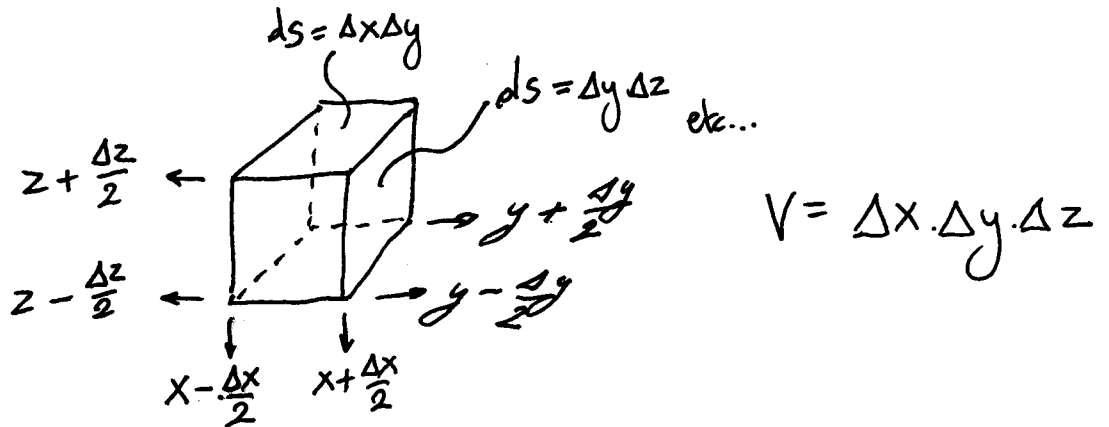 ds = ΔxΔy
ds = Δy Δz
etc...
z + Δz/2
y + Δy/2
V = Δx.Δy.Δz
z - Δz/2
y - Δy/2
x - Δx/2
x + Δx/2